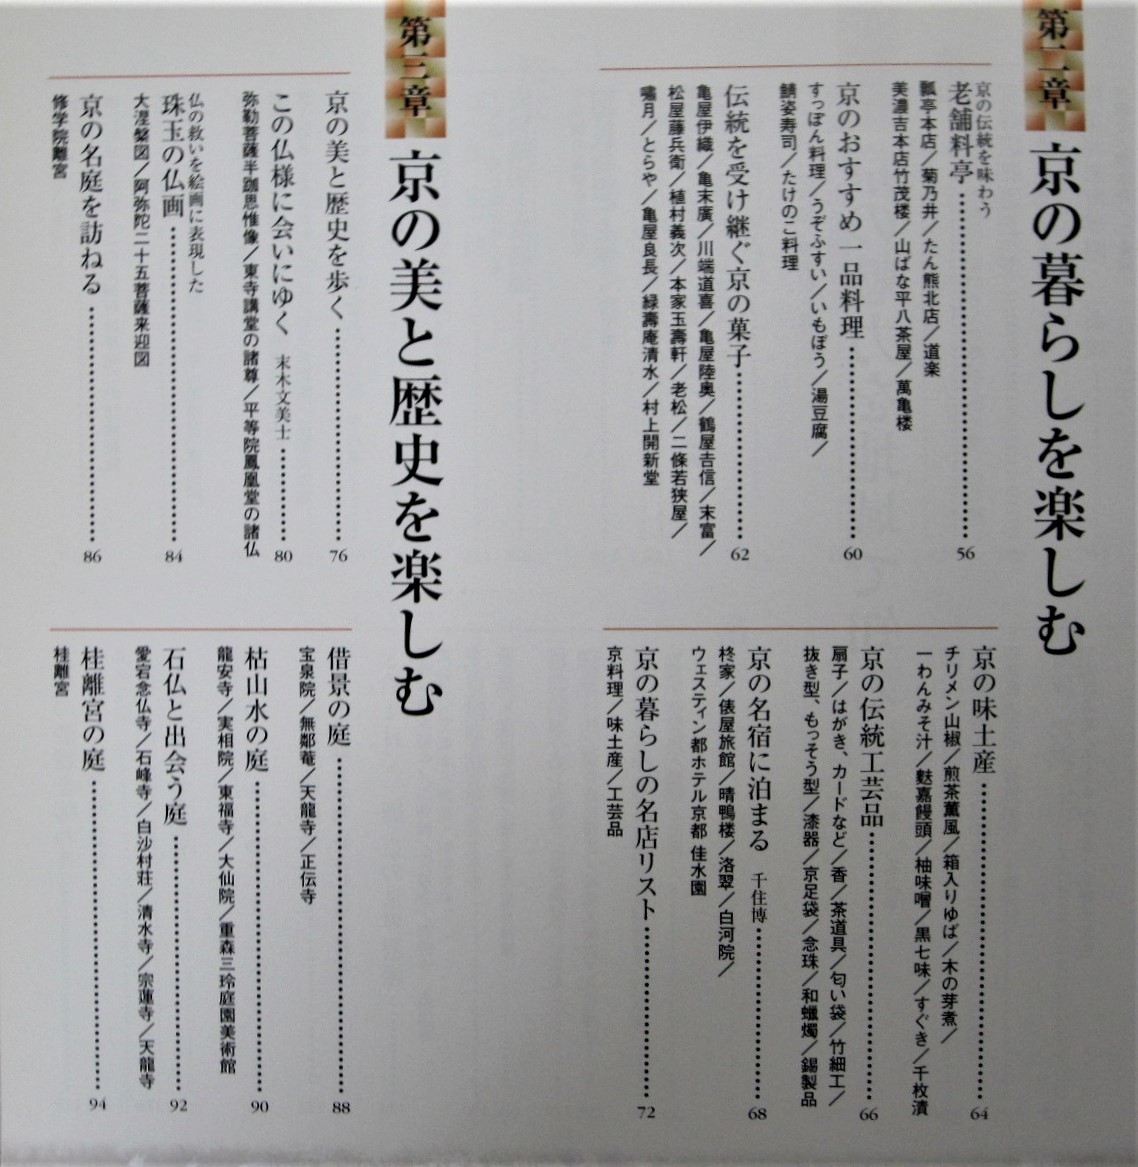 第二章
京の暮らしを楽しむ
京の伝統を味わう
老舗料亭 56
瓢亭本店／菊乃井／たん熊北店／道楽
美濃吉本店竹茂楼／山ばな平八茶屋／萬亀楼
京のおすすめ一品料理 60
すっぽん料理／うぞふすい／いもぼう／湯豆腐／
鯖姿寿司／たけのこ料理
伝統を受け継ぐ京の菓子 62
亀屋伊織／亀末廣／川端道喜／亀屋陸奥／鶴屋𠮷信／末富／
松屋藤兵衛／植村義次／本家玉壽軒／老松／二條若狭屋／
嘯月／とらや／亀屋良長／緑壽庵清水／村上開新堂
京の味土産 64
チリメン山椒／煎茶薫風／箱入りゆば／木の芽煮／
一わんみそ汁／麩嘉饅頭／柚味噌／黒七味／すぐき／千枚漬
京の伝統工芸品 66
扇子／はがき、カードなど／香／茶道具／匂い袋／竹細工／
抜き型、もっそう型／漆器／京足袋／念珠／和蠟燭／錫製品
京の名宿に泊まる 千住博 68
柊家／俵屋旅館／晴鴨楼／洛翠／白河院／
ウェスティン都ホテル京都 佳水園
京の暮らしの名店リスト 72
京料理／味土産／工芸品
第三章
京の美と歴史を楽しむ
京の美と歴史を歩く 76
この仏様に会いにゆく 末木文美士 80
弥勒菩薩半跏思惟像／東寺講堂の諸尊／平等院鳳凰堂の諸仏
仏の救いを絵画に表現した
珠玉の仏画 84
大涅槃図／阿弥陀二十五菩薩来迎図
京の名庭を訪ねる 86
修学院離宮
借景の庭 88
宝泉院／無鄰菴／天龍寺／正伝寺
枯山水の庭 90
龍安寺／実相院／東福寺／大仙院／重森三玲庭園美術館
石仏と出会う庭 92
愛宕念仏寺／石峰寺／白沙村荘／清水寺／宗蓮寺／天龍寺
桂離宮の庭 94
桂離宮